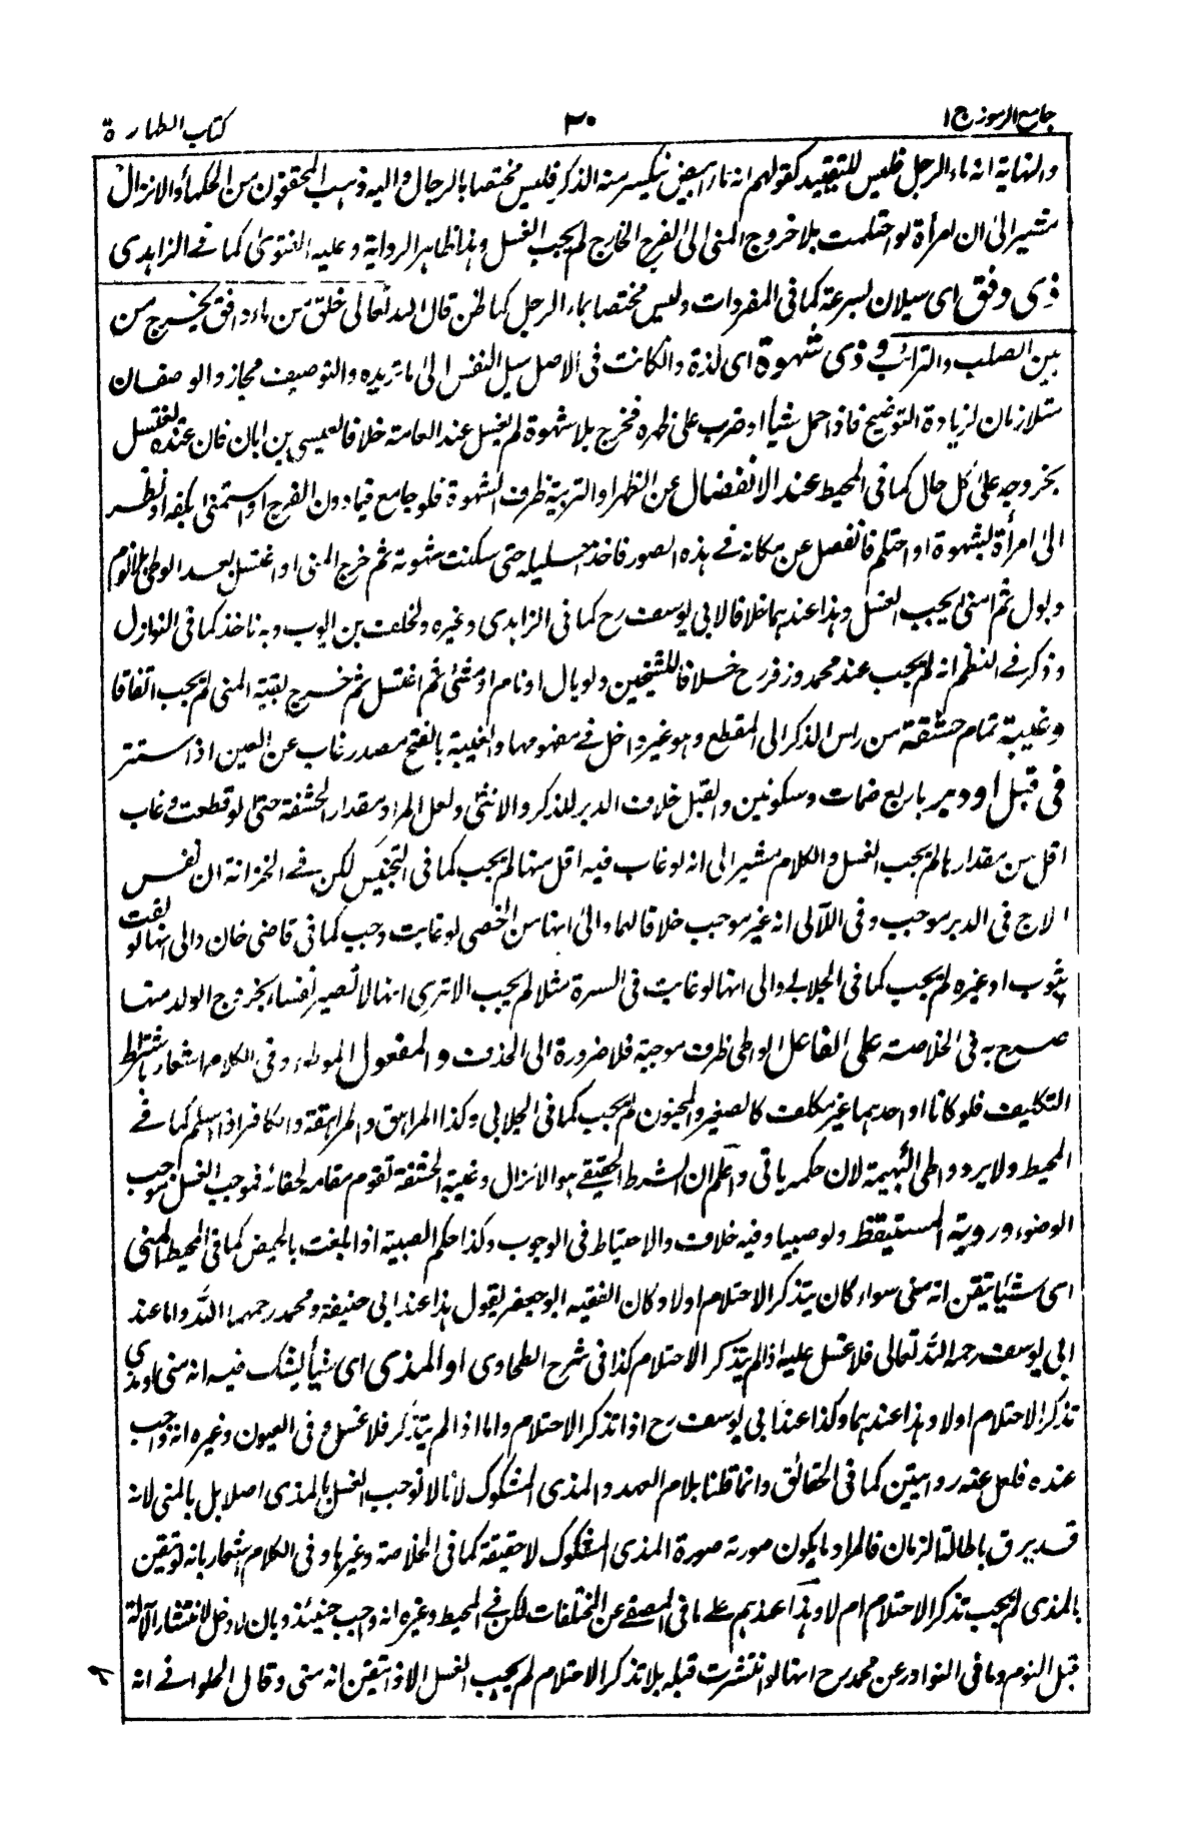 جامع الرموز ج ١
٣٠
كتاب الطهارة
والنهاية انه ماء الرجل فليس للتقييد كقولهم انه ماء ابيض ينكسر منه الذكر فليس مختصا بالرجال واليه ذهب المحققون من الحكماء والانزال
مشير الى ان امرأة لو احتلمت بلا خروج المنى الى الفرج الخارج لم يجب الغسل وهذا ظاهر الرواية وعليه الفتوى كما في الزاهدى
ذى دفق اى سيلان بسرعة كما فى المفردات وليس مختصا بماء الرجل كما ظن قال الله تعالى خلق من ماء دافق يخرج من
بين الصلب والترائب و ذى شهوة اى لذة وانكانت فى الاصل ميل النفس الى ما تريده والتوصيف مجاز والوصفان
متلازمان لزيادة التوضيح فاذا حمل شيأ او ضرب على ظهره فخرج بلا شهوة لم يغسل عند العامة خلافا لعيسى بن ابان فان عنده يغتسل
بخروجه على كل حال كما فى المحيط عند الانفصال عن الظهر او التريبة ظرف لشهوة فلو جامع فيما دون الفرج او استمنى بكفه او نظر
الى امرأة بشهوة او احتلم فانفصل عن مكانه فى هذه الصور فاخذ احليله حتى سكنت شهوته ثم خرج المنى او اغتسل بعد الوطى بلا نوم
وبول ثم امنى يجب الغسل وهذا عندهما خلافا لابى يوسف رح كما فى الزاهدى وغيره ولخلف بن ايوب وبه ناخذ كما فى النوازل
وذكر فى النظم انه لم يجب عند محمد وزفر رح خلافا للشيخين ولو بال او نام او مشى ثم اغتسل ثم خرج بقية المنى لم يجب اتفاقا
وغيبة تمام حشفة من راس الذكر الى المقطع وهو غير داخل فى مفهومها والغيبة بالفتح مصدر غاب عن العين اذا استتر
فى قبل او دبر باربع ضمات وسكونين والقبل خلاف الدبر للذكر والانثى ولعل المراد مقدار الحشفة حتى لو قطعت وغاب
اقل من مقدارها لم يجب الغسل والكلام مشير الى انه لو غاب فيه اقل منها لم يجب كما فى التجنيس لكن فى الخزانة ان نفس
الايلاج فى الدبر موجب وفى اللآلى انه غير موجب خلافا لهما والى انها من الخصى لو غابت وجب كما فى قاضى خان والى انها لو لفت
بثوب او غيره لم يجب كما فى الجلابى والى انها لو غابت فى السرة مثلا لم يجب الا ترى انها لا تصير نفساء بخروج الولد منها
صرح به فى الخلاصة على الفاعل الواطى ظرف موجبة فلا ضرورة الى الحذف و المفعول الموطوء وفى الكلام اشعار باشتراط
التكليف فلو كانا او احدهما غير مكلف كالصغير والمجنون لم يجب كما فى الجلابى وكذا المراهق والمراهقة والكافر اذا اسلم كما فى
المحيط ولا يرد واطى البهيمة لان حكمه ياتى واعلم ان الشرط الحقيقى هو الانزال وغيبة الحشفة تقوم مقامه لخفائه فموجب الغسل موجب
الوضوء و روية المستيقظ ولو صبيا وفيه خلاف والاحتياط فى الوجوب وكذا حكم الصبية اذا بلغت بالحيض كما فى المحيط المنى
اى شيئا يتيقن انه منى سواء كان يتذكر الاحتلام اولا وكان الفقيه ابو جعفر يقول هذا عند ابى حنيفة ومحمد رحمهما الله واما عند
ابى يوسف رحمه الله تعالى فلا غسل عليه اذا لم يتذكر الاحتلام كذا فى شرح الطحاوى او المذى اى شيأ يشك فيه انه منى او مذى
تذكر الاحتلام اولا وهذا عندهما وكذا عند ابى يوسف رح اذا تذكر الاحتلام واما اذا لم يتذكر فلا غسل وفى العيون وغيره انه واجب
عنده فلعل عنه روايتين كما فى الحقائق وانما قلنا بلام العهد والمذى المشكوك لانا لا نوجب الغسل بالمذى اصلا بل بالمنى لانه
قد يرق باطالة الزمان فالمراد ما يكون صورته صورة المذى المشكوك لا حقيقة كما فى الخلاصة وغيرها وفى الكلام اشعار بانه لو تيقن
بالمذى لم يجب تذكر الاحتلام ام لا وهذا عندهم على ما فى المصفى عن المختلفات لكن فى المحيط وغيره انه واجب حينئذ وبان لا دخل لانتشار الآلة
قبل النوم وما فى النوادر عن محمد رح انها لو انتشرت قبله بلا تذكر الاحتلام لم يجب الغسل الا اذا تيقن انه منى وقال الحلوانى انه